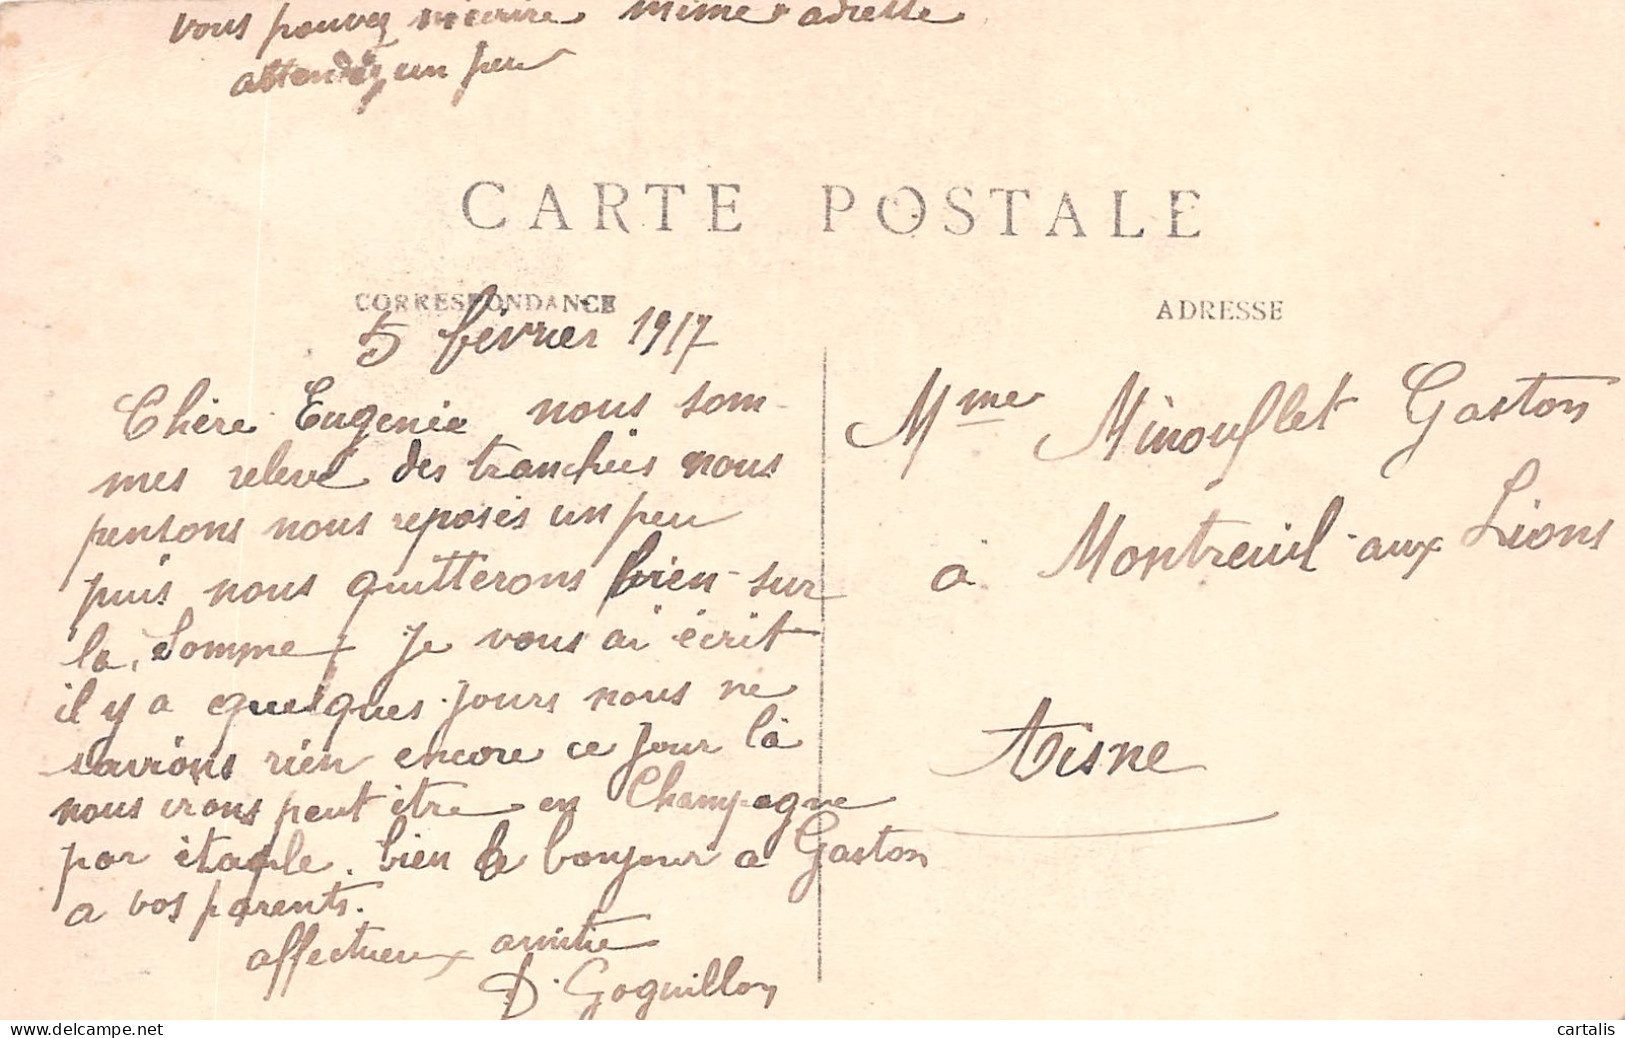 vous pouvez m'écrire même adresse
attendez un peu
CARTE POSTALE
CORRESPONDANCE
ADRESSE
5 février 1917
Chère Eugenie nous som-
mes relevé des tranchées nous
pensons nous reposés un peu
puis nous quitterons bien sur
la Somme. Je vous ai écrit
il y a quelques jours nous ne
savions rien encore ce jour là
nous irons peut être en Champagne
par étaple. bien le bonjour a Gaston
a vos parents.
affectueux amitié
D. Goguillon
Mme Minouflet Gaston
à Montreuil-aux Lions
Aisne
cartalis
www.delcampe.net